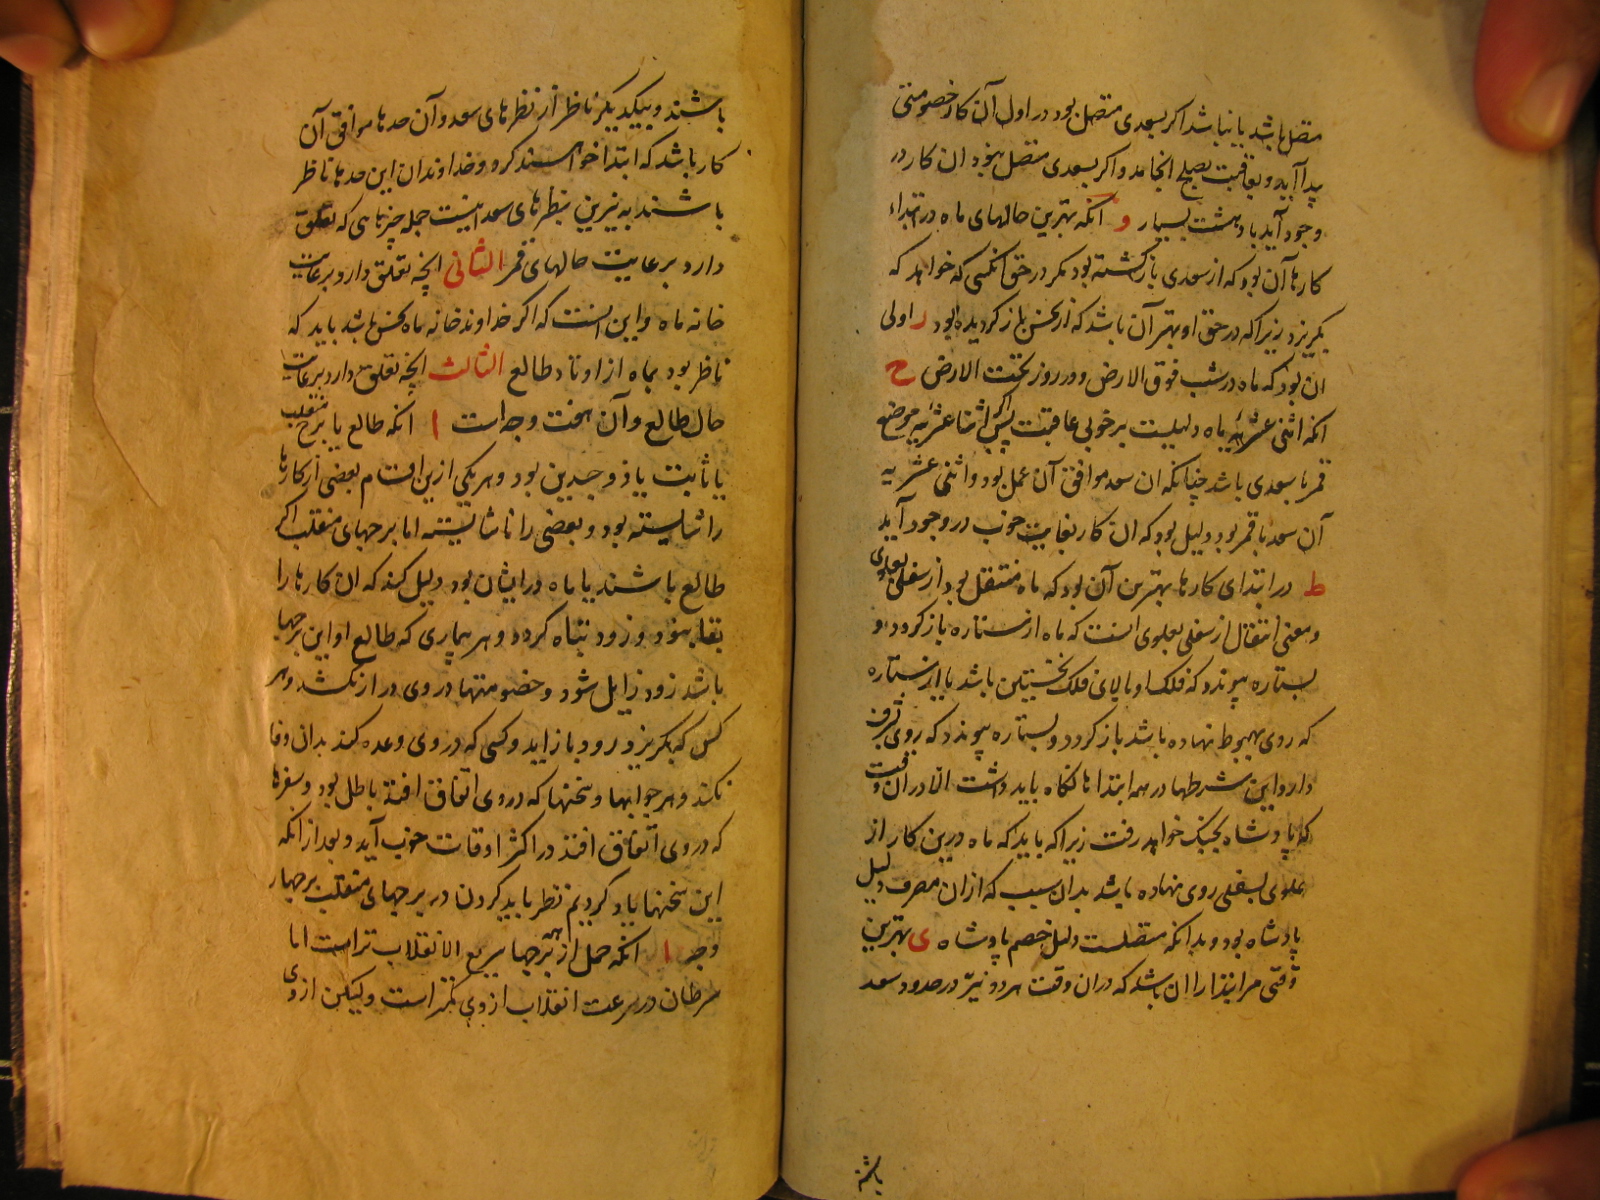 متصل باشد یا نباشد اگر بسعدی متصل بود در اول آن کار خصومتی
پیدا آید و بعاقبت بصلح انجامد و اگر بسعدی متصل نبود ان کار در
وجود آید با دهشت بسیار و انکه بهترین حالهای ماه در ابتداء
کارها آن بود که از سعدی بازگشته بود مگر در حق آنکسی که خواهد که
بگریزد زیرا که در حق او بهتر آن باشد که از نحس باز گردیده بود ز اولی
ان بود که ماه در شب فوق الارض و در روز تحت الارض ح
انکه اثنی عشریه ماه دلیلست بر خوبی عاقبت پس اگر اثنا عشریه موضع
قمر با سعدی باشد چنانکه ان سعد موافق آن عمل بود و اثنی عشریه
آن سعد با قمر بود دلیل بود که ان کار بغایت خوب در وجود آید
ط در ابتدای کارها بهترین آن بود که ماه منتقل بود از سفلی بعلوی
و معنی انتقال از سفلی بعلوی انست که ماه از ستاره باز گردد و
بستاره پیوندد که فلک او بالای فلک نخستین باشد یا از ستاره
که روی بهبوط نهاده باشد باز گردد و بستاره پیوندد که روی بشرف
دارد و این شرطها در همه ابتداها نگاه باید داشت الّا در آن وقت
که پادشاه بجنک خواهد رفت زیرا که باید که ماه درین کار از
علوی بسفلی روی نهاده باشد بدان سبب که از ان منصرف دلیل
پادشاه بود و بدانکه متصلست دلیل خصم پادشاه ی بهترین
وقتی مر ابتدا را ان باشد که در ان وقت هر دو نیّر در حدود سعد
باشند
باشند و بیکدیگر ناظر از نظرهای سعد و آن حدها موافق آن
کار باشد که ابتدا خواسند کرد و خداوندان این حدها ناظر
باشند به نیرین بنظرهای سعد اینست جمله چیزهایی که تعلق
دارد برعایت حالهای قمر الثانی انچه تعلق دارد برعایت
خانه ماه و این انست که اگر خداوند خانه ماه نحس باشد باید که
ناظر بود بماه از اوتاد طالع الثالث انچه تعلق دارد برعایت
حال طالع و آن هفت وجه است ا انکه طالع یا برج منقلب
یا ثابت یا ذو جسدین بود و هر یکی ازین اقسام بعضی از کارها
را شایسته بود و بعضی را ناشایسته اما برجهای منقلب اگر
طالع باشند یا ماه در ایشان بود دلیل کند که ان کارها را
بقا نبود و زود تباه گردد و هر بیماری که طالع او این برجها
باشد زود زایل شود و خصومتها در وی دراز نکشد و هر
کس که بگریزد زود باز اید و کسی که در وی وعده کند بدان وفا
نکند و هر جوابها و سخنها که در وی اتفاق افتد باطل بود و سفرها
که در وی اتفاق افتد در اکثر اوقات خوب آید و بعد از انکه
این سخنها یاد کردیم نظر باید کردن در برجهای منقلب بر چهار
وجه ا انکه حمل از همه برجها سریع الانقلاب تراست اما
سرطان در سرعت انقلاب از وی کمتر است و لیکن از وی